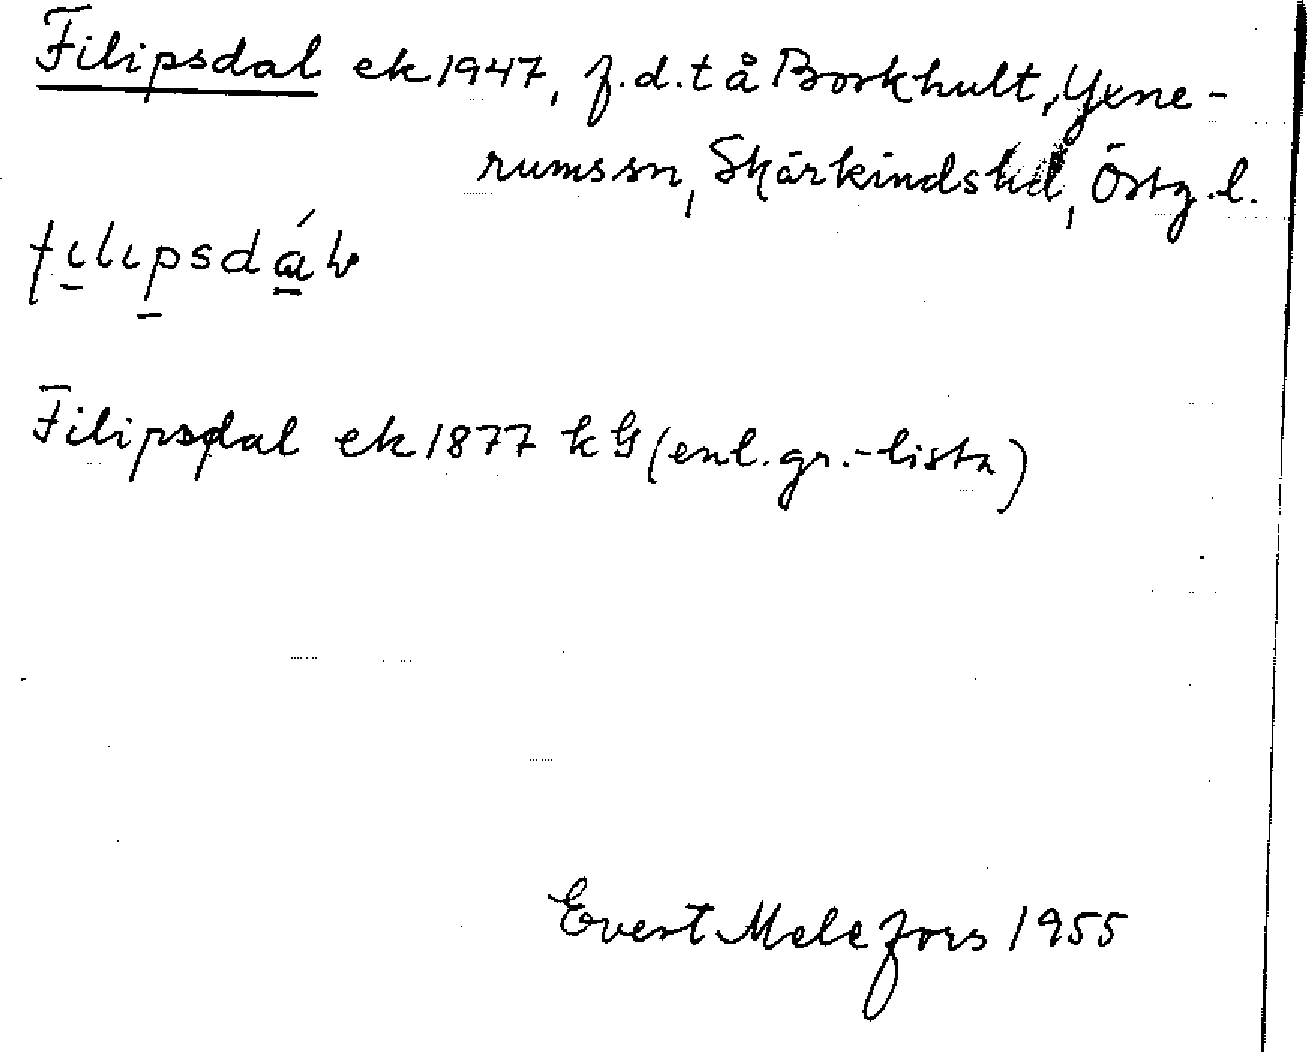 Filipsdal ek 1947, f.d.t å Borkhult, Yxne-
rumssn, Skärkinds hd, Östg.l.
filipsdál
Filipsdal ek 1877 kG (enl. gr.-lista)
Evert Melefors 1955